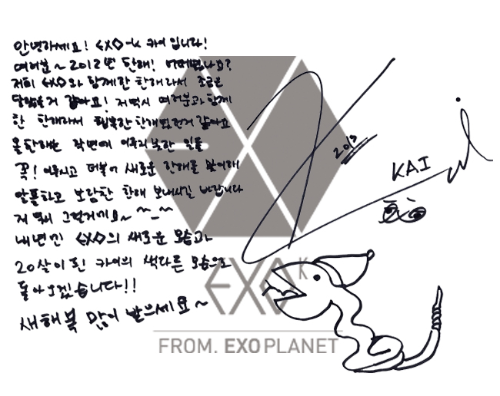 안녕하세요! EXO-K 카이 입니다!
여러분~ 2012년 한해! 어떠셨나요?
저희 EXO와 함께한 한해라서 조금은
달랐을거 같아요! 저 역시 여러분과 함께
한 한해라서 행복한 한해였던거 같아요
올 한해는 작년에 이루지 못한 일들
꼭! 이루시고 더불어 새로운 한해를 맞이해
알콜하고 보람찬 한해 보내시길 바랍니다
저 역시 그럴거에요~ ~ ~
내년엔 EXO의 새로운 모습과
20살이 된 카이의 색다른 모습으로
돌아오겠습니다!!
새해 복 많이 받으세요~
Kai
2013
KAI
EXO K
FROM. EXOPLANET